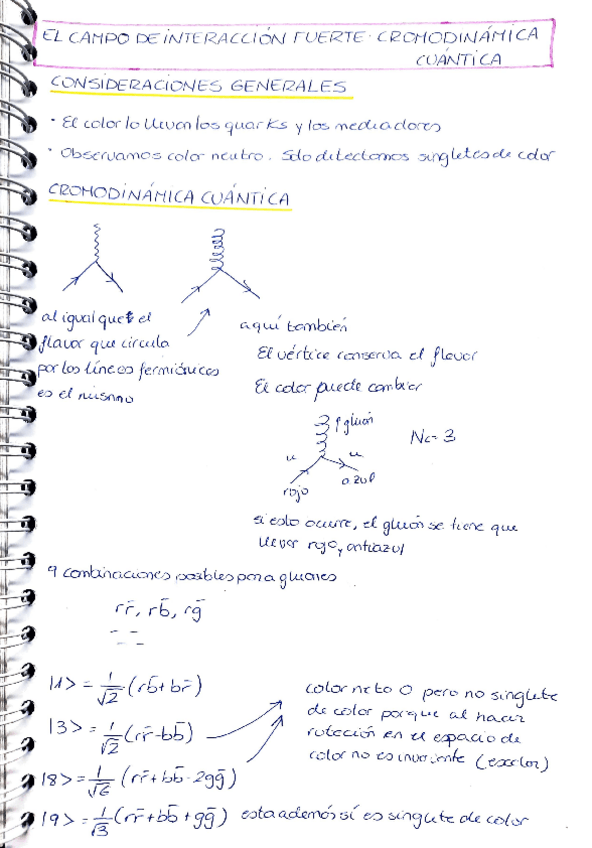 EL CAMPO DE INTERACCIÓN FUERTE. CROMODINÁMICA
CUÁNTICA
CONSIDERACIONES GENERALES
· El color lo llevan los quarks y los mediadores
· Observamos color neutro. Solo detectamos singletes de color
CROMODINÁMICA CUÁNTICA
al igual que el
flavor que circula
por las líneas fermiónicas
es el mismo
aquí también
El vértice conserva el flavor
El color puede cambiar
gluón
Nc = 3
u
u
rojo
azul
si esto ocurre, el gluón se tiene que
llevar rojo y antiazul
9 combinaciones posibles para gluones
rr̄, rb̄, rḡ
|1> = 1/√2 (rb̄ + br̄)
|3> = 1/√2 (rr̄ - bb̄)
|8> = 1/√6 (rr̄ + bb̄ - 2gḡ)
|9> = 1/√3 (rr̄ + bb̄ + gḡ) esta además sí es singlete de color
color neto 0 pero no singlete
de color porque al hacer
rotación en el espacio de
color no es invariante (escalar)